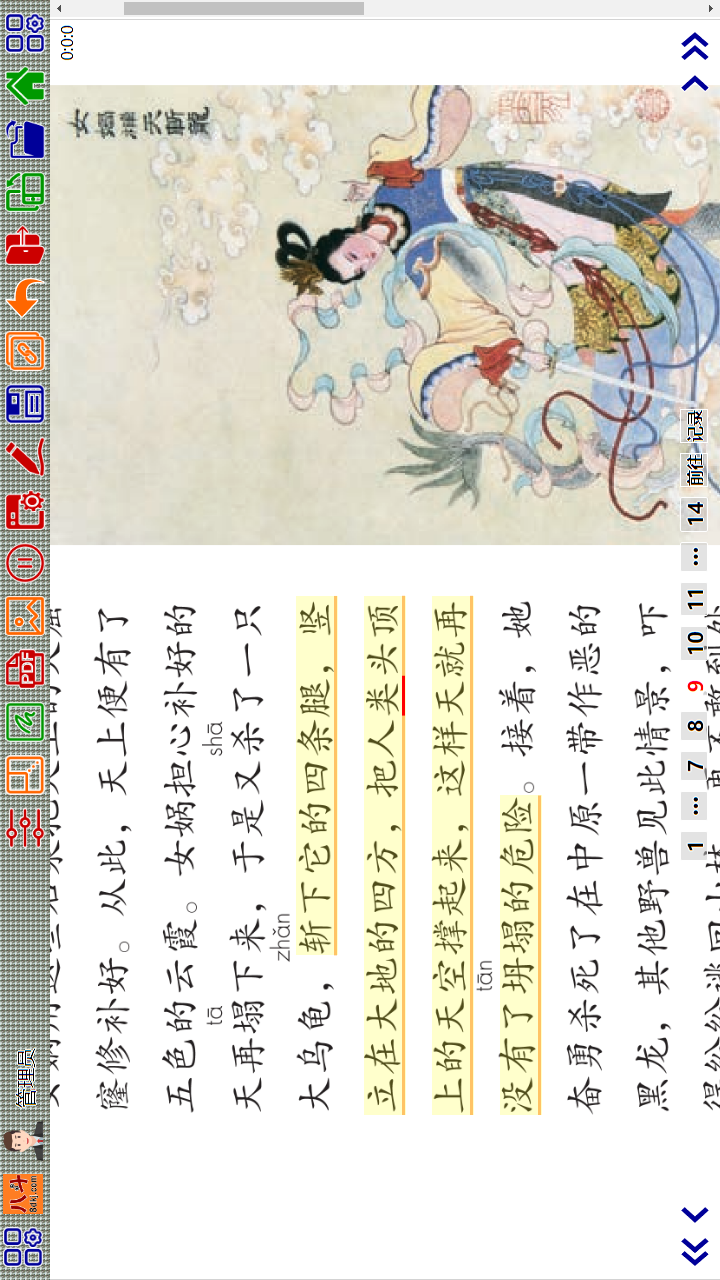 八斗
8dkj.com
管理员
PDF
0:0:0
窿修补好。从此，天上便有了
五色的云霞。女娲担心补好的
tā shā
天再塌下来，于是又杀了一只
zhǎn
大乌龟，斩下它的四条腿，竖
立在大地的四方，把人类头顶
上的天空撑起来，这样天就再
tān
没有了坍塌的危险。接着，她
奋勇杀死了在中原一带作恶的
黑龙，其他野兽见此情景，吓
1 ... 7 8 9 10 11 ... 14 前往 记录